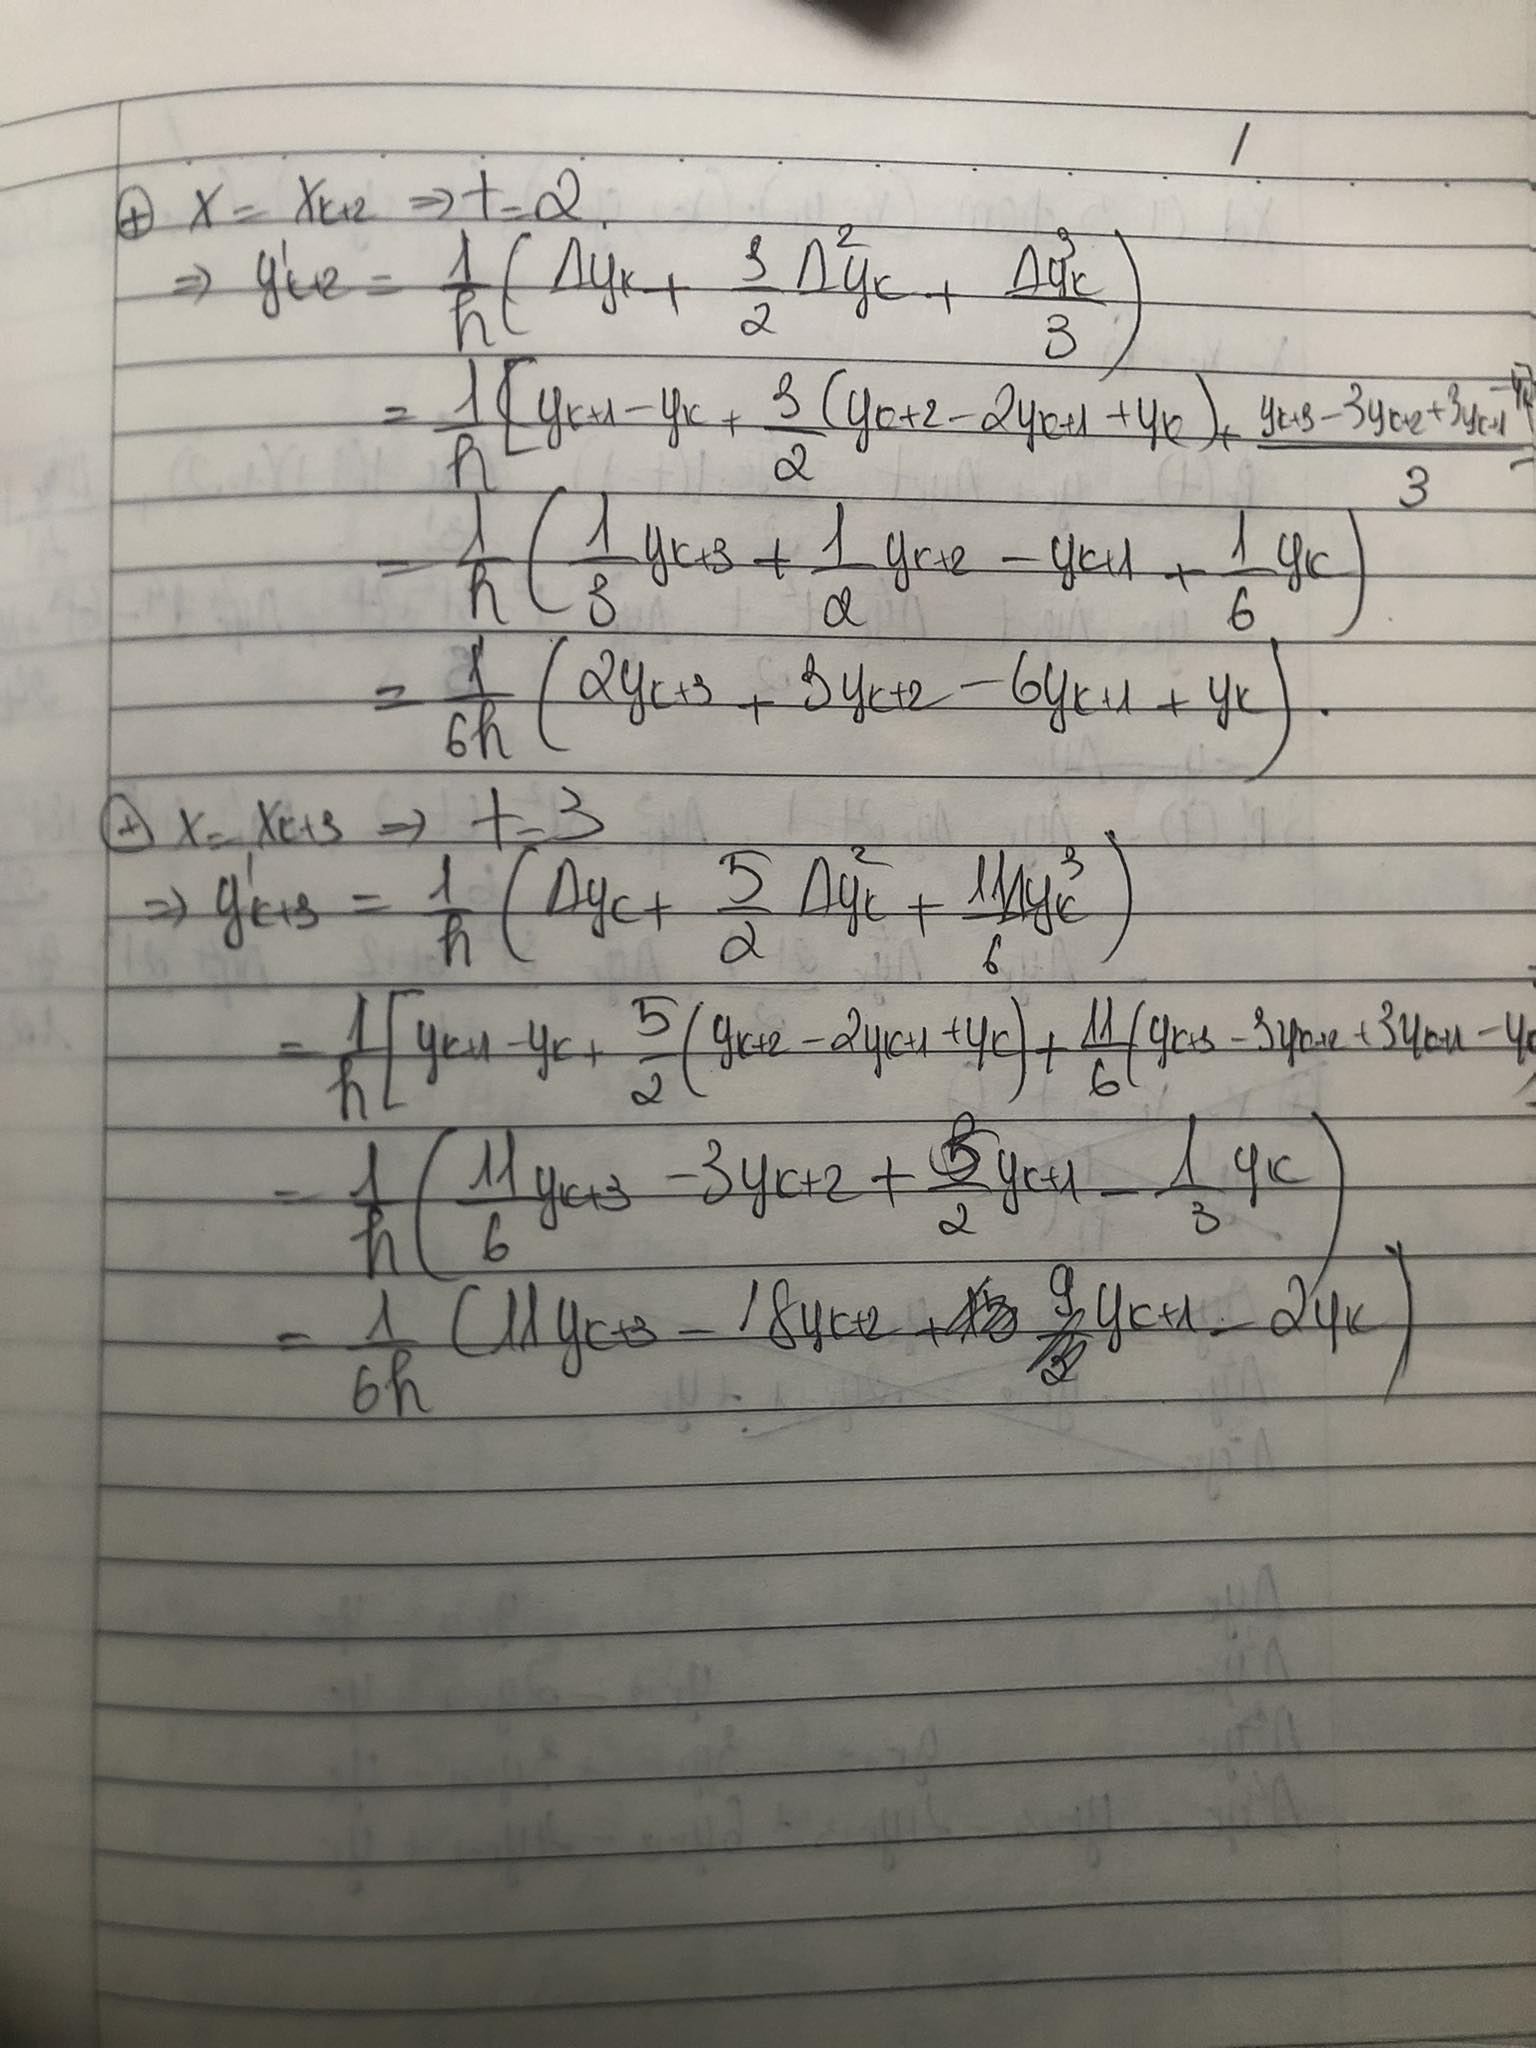 ⊕ x = x_{k+2} ⇒ t = 2.
⇒ y'_{k+2} = 1/h ( Δy_k + 3/2 Δ²y_k + Δ³y_k/3 )
= 1/h [ y_{k+1} - y_k + 3/2 (y_{k+2} - 2y_{k+1} + y_k) + (y_{k+3} - 3y_{k+2} + 3y_{k+1} - y_k)/3
= 1/h ( 1/3 y_{k+3} + 1/2 y_{k+2} - y_{k+1} + 1/6 y_k )
= 1/6h ( 2y_{k+3} + 3y_{k+2} - 6y_{k+1} + y_k ).
⊕ x = x_{k+3} ⇒ t = 3
⇒ y'_{k+3} = 1/h ( Δy_k + 5/2 Δ²y_k + 11Δ³y_k/6 )
= 1/h [ y_{k+1} - y_k + 5/2 (y_{k+2} - 2y_{k+1} + y_k) + 11/6 (y_{k+3} - 3y_{k+2} + 3y_{k+1} - y_k
= 1/h ( 11/6 y_{k+3} - 3y_{k+2} + 3/2 y_{k+1} - 1/3 y_k )
= 1/6h ( 11y_{k+3} - 18y_{k+2} + 9y_{k+1} - 2y_k )